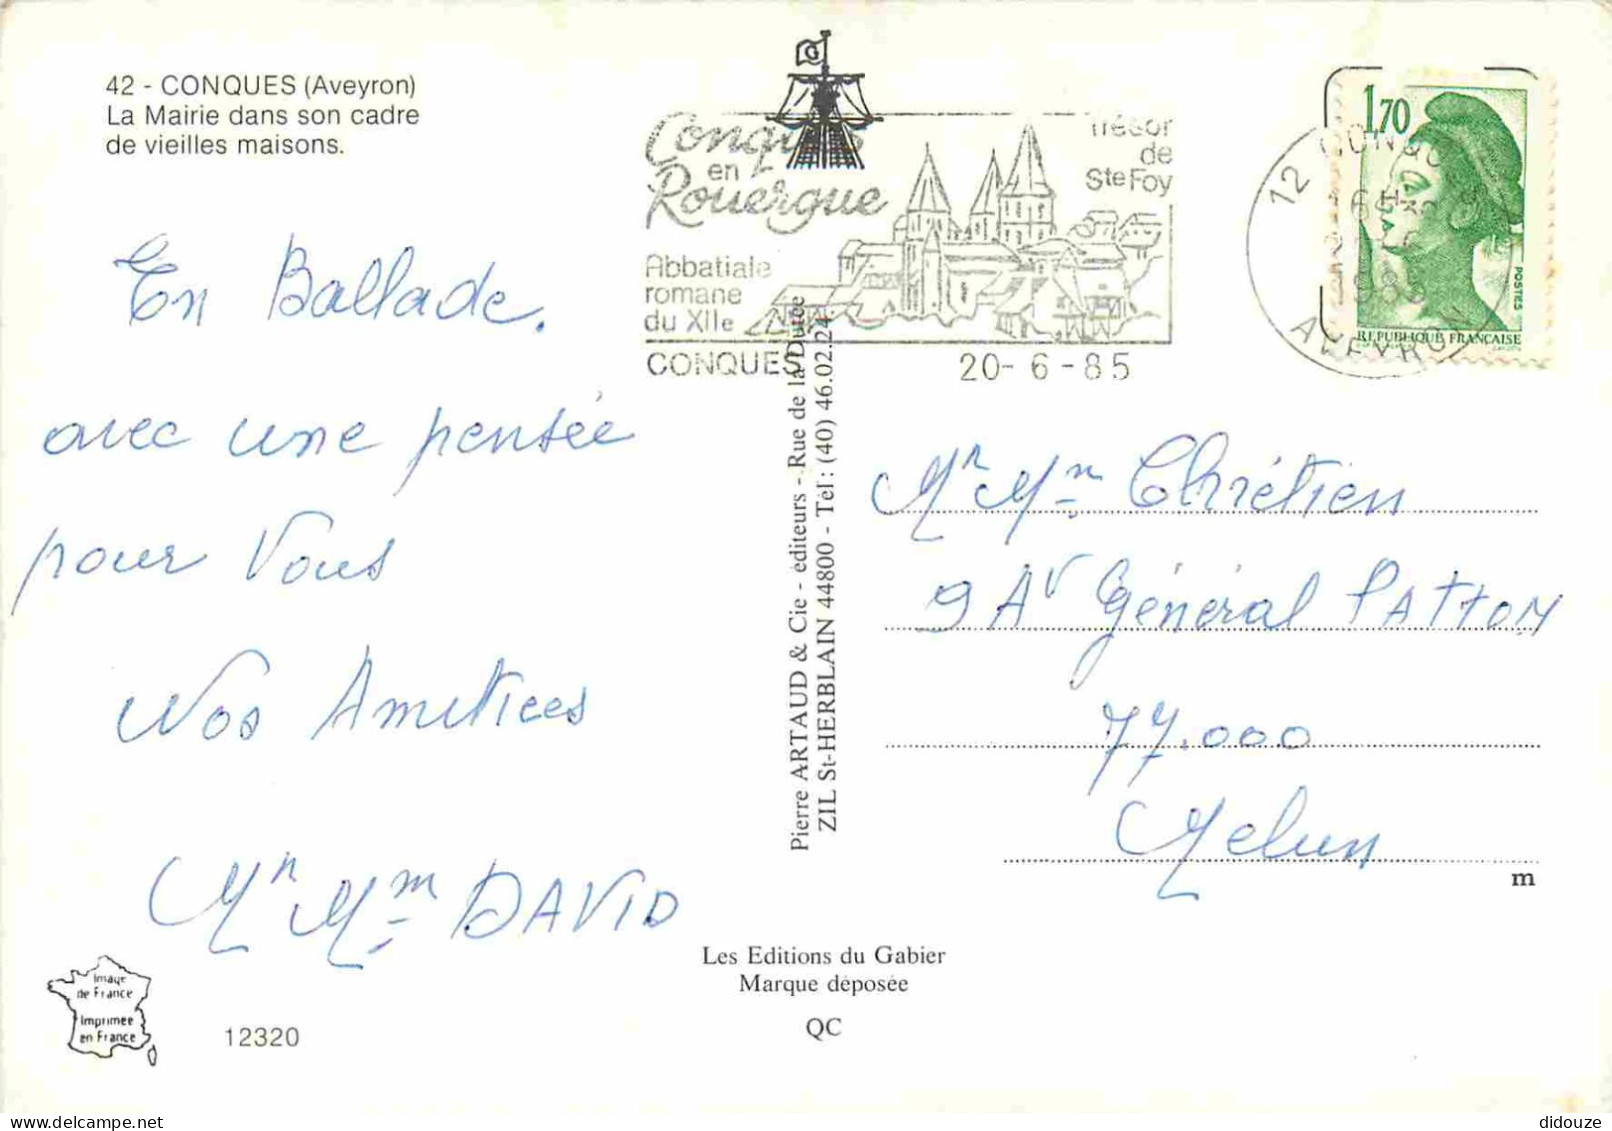 42 - CONQUES (Aveyron)
La Mairie dans son cadre
de vieilles maisons.
Conques
en
Rouergue
Abbatiale
romane
du XIIe
Trésor
de
Ste Foy
CONQUES
20-6-85
12 CONQUES
AVEYRON
1,70
POSTES
REPUBLIQUE FRANÇAISE
En Ballade.
avec une pensée
pour Vous
Nos Amitiees
Mr Mm DAVID
Pierre ARTAUD & Cie - éditeurs - Rue de la Durée
ZIL St-HERBLAIN 44800 - Tél : (40) 46.02.24
Mr Mm Chrétien
9 Av Général PATTON
77.000
Melun
m
Les Editions du Gabier
Marque déposée
QC
Image
de France
Imprimée
en France
12320
didouze